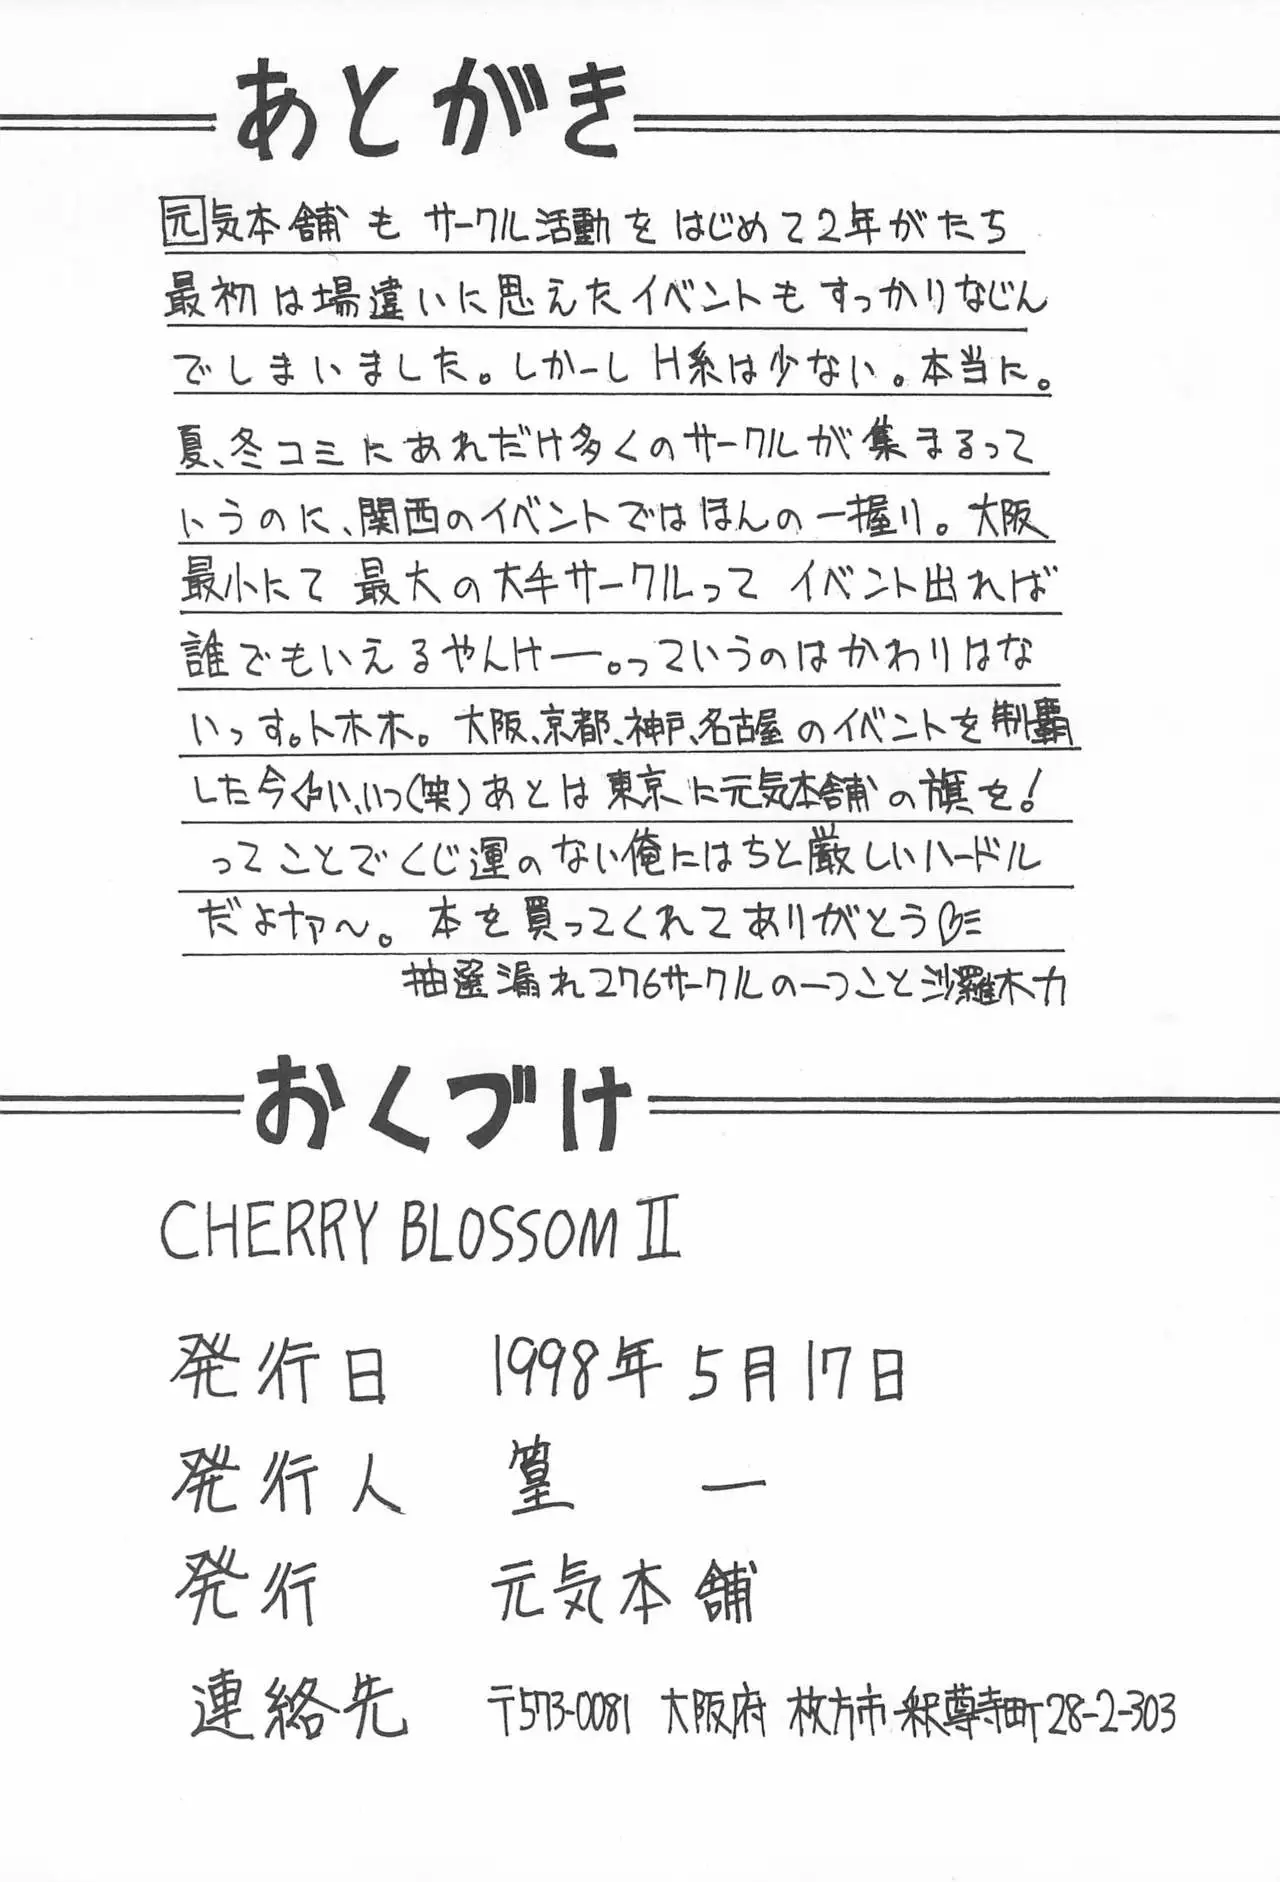 あとがき
元気本舗も サークル活動をはじめて2年がたち
最初は場違いに思えたイベントもすっかりなじん
でしまいました。しかーしH系は少ない。本当に。
夏、冬コミにあれだけ多くのサークルが集まるって
いうのに、関西のイベントではほんの一握り。大阪
最小にて最大の大手サークルって イベント出れば
誰でもいえるやんけー。っていうのはかわりはな
いっす。トホホ。大阪、京都、神戸、名古屋のイベントを制覇
した今(笑)あとは東京に元気本舗の旗を!
ってことでくじ運のない俺にはちと厳しいハードル
だよナァ〜。本を買ってくれてありがとう♡
抽選漏れ276サークルの一つこと沙羅木力
おくづけ
CHERRY BLOSSOM II
発行日 1998年5月17日
発行人 篁 一
発行 元気本舗
連絡先 〒573-0081 大阪府 枚方市釈尊寺町28-2-303